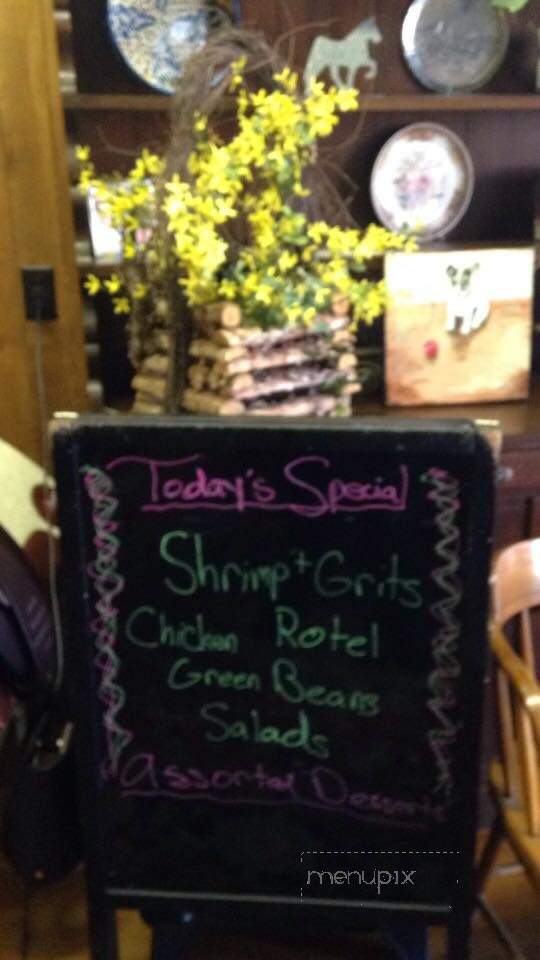 Today's Special
Shrimp + Grits
Chicken Rotel
Green Beans
Salads
Assorted Desserts
menupix